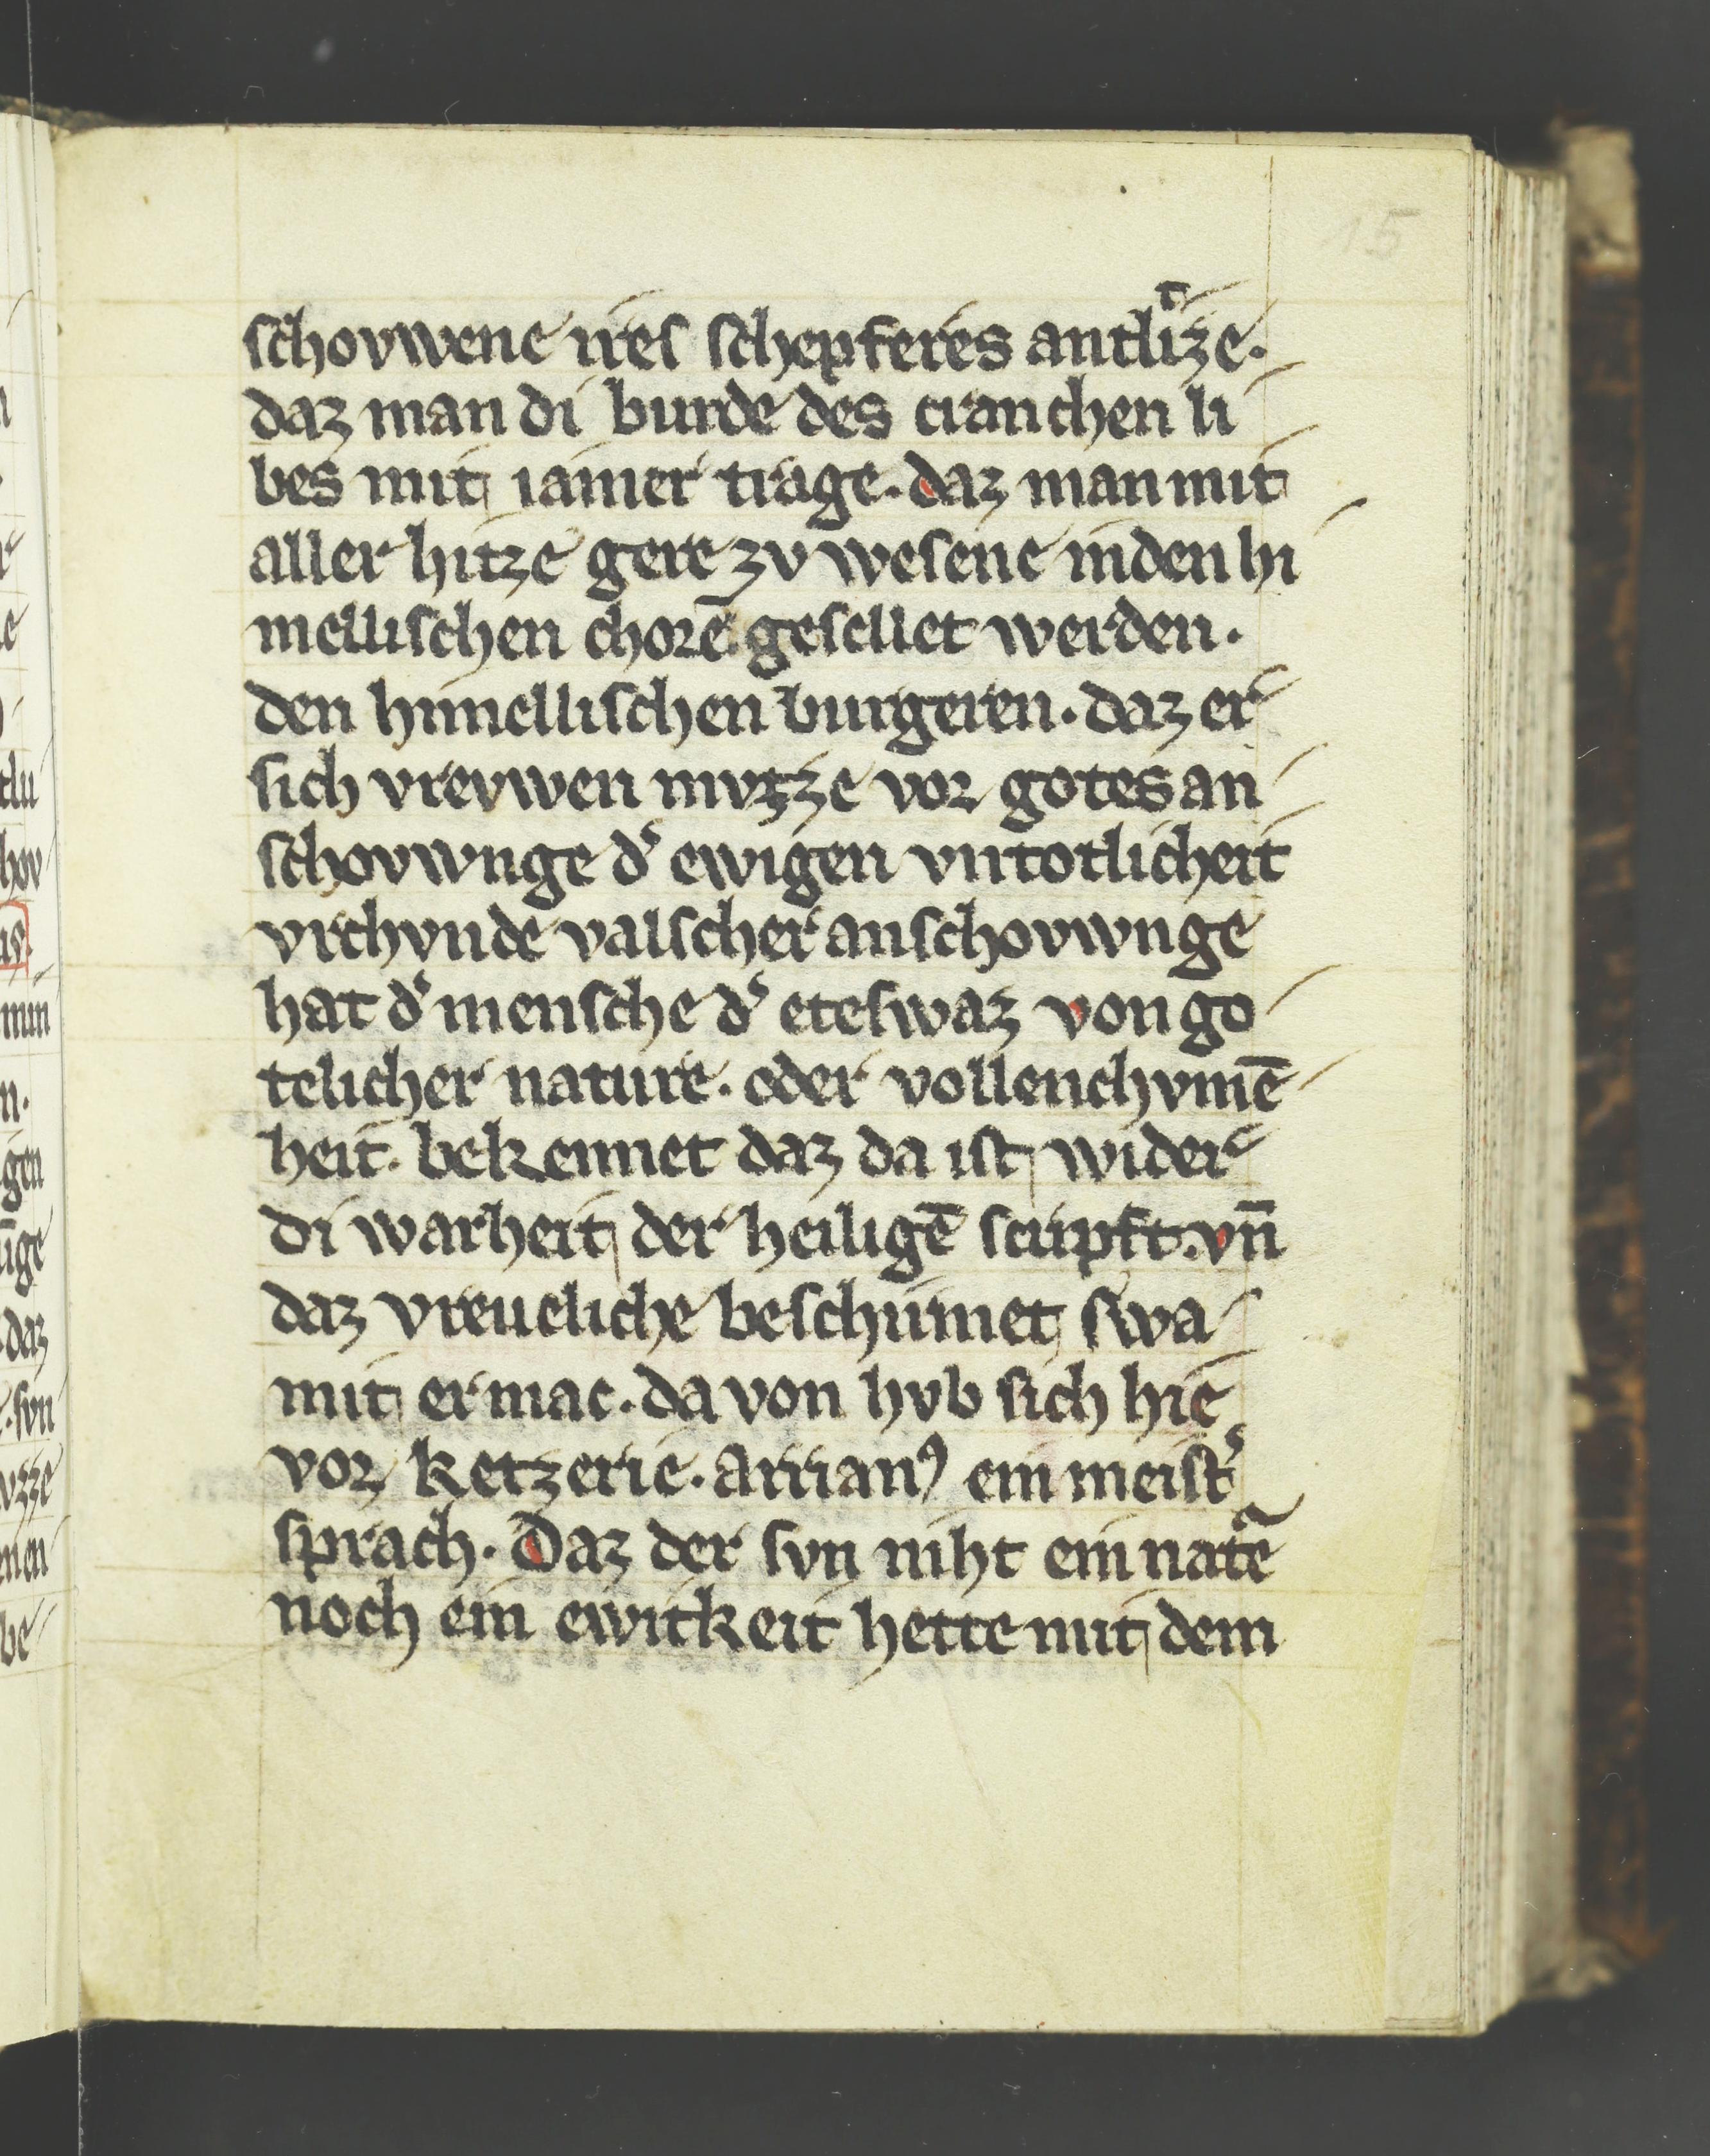 15
schovwene ires schepferes antlitze.
daz man di burde des cranchen li
bes mit iamer trage. daz man mit
aller hitze gere zv wesene in den hi
mellischen chorē gesellet werden.
den himellischen burgeren. daz er
sich vrevwen mvzze vor gotes an
schovwnge dʾ ewigen vntotlicheit
vrchvnde valscher anschovwnge
hat dʾ mensche dʾ eteswaz von go
telicher nature. oder vollenchvmē
heit. bekennet daz da ist wider
di warheit der heiligē scripft. vn̄
daz vreueliche beschirmet swa
mit er mac. da von hvb sich hie
vor ketzerie. arrianꝰ ein meistʾ
sprach. Daz der svn niht ein natᵃe
noch ein ewitkeit hette mit dem